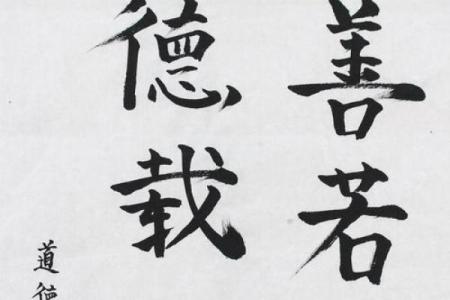 善若
德载
道德